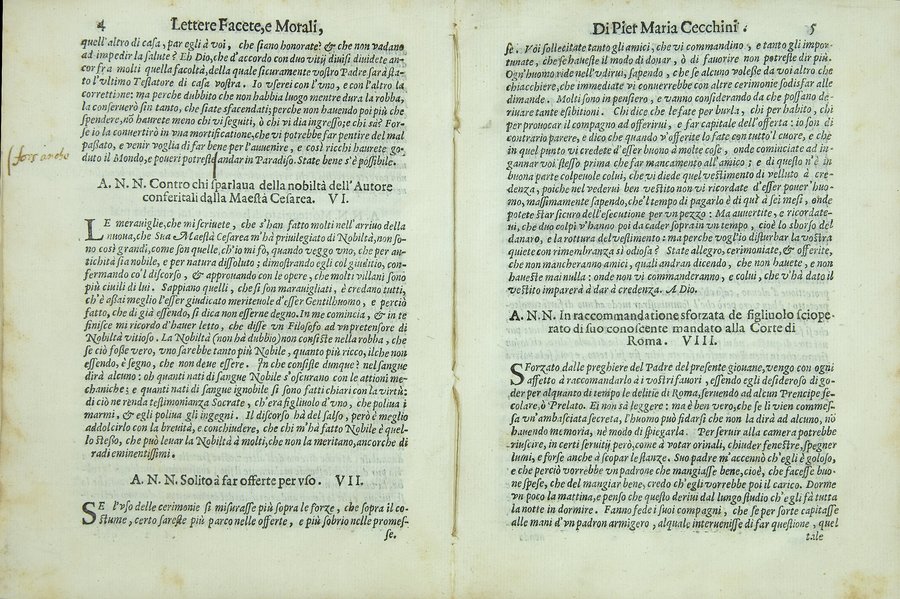 4 Lettere Facete, e Morali,
quell'altro di casa, par egli à voi, che siano honorate? & che non vadano
ad impedir la salute? Eh Dio, che d'accordo con duo vitij diuisi diuidete an-
cor fra molti quella facoltà, della quale sicuramente vostro Padre sarà sta-
to l'vltimo Testatore di casa vostra. Io vserei con l'vno, e con l'altro la
correttione: ma perche dubbito che non habbia luogo mentre dura la robba,
la conseruerò sin tanto, che siate sfacendati; perche non hauendo poi più che
spendere, nò haurete meno chi vi seguiti, ò chi vi dia ingresso; e chi sa? For-
se io la conuertirò in vna mortificatione, che vi potrebbe far pentire del mal
passato, e venir voglia di far bene per l'auuenire, e così ricchi haurete go-
duto il Mondo, e poueri potreste andar in Paradiso. State bene s'è possibile.
fors anche
A. N. N. Contro chi sparlaua della nobiltà dell'Autore
conferitali dalla Maestà Cesarea. VI.
LE merauiglie, che mi scriuete, che s'han fatto nell'arriuo della
nuoua, che Sua Maestà Cesarea m'hà priuilegiato di Nobiltà, non so-
no così grandi, come son quelle, ch'io mi fò, quando veggo vno, che per an-
tichità sia nobile, e per natura dissoluto; dimostrando egli col giuditio, con-
fermando co'l discorso, & approuando con le opere, che molti villani sono
più ciuili di lui. Sappiano quelli, che si son marauigliati, è credano tutti,
ch'è assai meglio l'esser giudicato meriteuole d'esser Gentilhuomo, e perciò
fatto, che di già essendo, si dica non esserne degno. In me comincia, & in te
finisce mi ricordo d'hauer letto, che disse vn Filosofo ad vn pretensore di
Nobiltà vitioso. La Nobiltà (non hà dubbio) non consiste nella robba, che
se ciò fosse vero, vno sarebbe tanto più Nobile, quanto più ricco, ilche non
essendo, è segno, che non deue essere. In che consiste dunque? nel sangue
dirà alcuno: oh quanti nati di sangue Nobile s'oscurano con le attioni me-
chaniche; e quanti nati di sangue ignobile si sono fatti chiari con la virtù:
di ciò ne renda testimonianza Socrate, ch'era figliuolo d'vno, che poliua i
marmi, & egli poliua gli ingegni. Il discorso hà del falso, però è meglio
addolcirlo con la breuità, e conchiudere, che chi m'hà fatto Nobile è quel-
lo stesso, che può leuar la Nobiltà à molti, che non la meritano, ancorche di
radi eminentissimi.
A. N. N. Solito à far offerte per vso. VII.
SE l'vso delle cerimonie si misurasse più sopra le forze, che sopra il co-
stume, certo sareste più parco nelle offerte, e più sobrio nelle promes-
se.
Di Piet Maria Cecchini. 5
se. Voi sollecitate tanto gli amici, che vi commandino, e tanto gli impor-
tunate, che se hauesste il modo di donar, ò di fauorire non potreste dir più.
Ogn'huomo ride nell'vdirui, sapendo, che se alcuno volesse da voi altro che
chiacchiere, che immediate vi conuerrebbe con altre cerimonie sodisfar alle
dimande. Molti sono in pensiero, e vanno considerando da che possano de-
riuare tante esibitioni. Chi dice che le fate per burla, chi per habito, chi
per prouocar il compagno ad offerirui, e far capitale dell'offerta: io son di
contrario parere, e dico che quando v'offerite lo fate con tutto l'cuore, e che
in quel punto vi credete d'esser buono à molte cose, onde cominciate ad in-
gannar voi stesso prima che far mancamento all'amico; e di questo n'è in
buona parte colpeuole colui, che vi diede quel vestimento di velluto à cre-
denza, poiche nel vederui ben vestito non vi ricordate d'esser pouer'huo-
mo, massimamente sapendo, che'l tempo di pagarlo è di quì à sei mesi, onde
potete star sicuro dell'esecutione per vn pezzo: Ma auuertite, e ricordate-
ui, che duo colpi v'hanno poi da cader sopra in vn tempo, cioè lo sborso del
danaro, e la rottura del vestimento: ma perche vogl'io disturbar la vostra
quiete con rimembranza sì odiosa? State allegro, cerimoniate, & offerite,
che non mancheranno amici, quali andran dicendo, che non hauete, e non
haueste mai nulla: onde non vi commanderanno, e colui, che v'hà dato il
vestito imparerà à dar à credenza. A Dio.
A. N. N. In raccommandatione sforzata de figliuolo sciope-
rato di suo conoscente mandato alla Corte di
Roma. VIII.
SForzato dalle preghiere del Padre del presente giouane, vengo con ogni
affetto à raccommandarlo à i vostri fauori, essendo egli desideroso di go-
der per alquanto di tempo le delitie di Roma, seruendo ad alcun Prencipe se-
colare, ò Prelato. Ei non sà leggere: ma è ben vero, che se li vien commes-
sa vn'ambasciata secreta, l'huomo può fidarsi che non la dirà ad alcuno, nò
hauendo memoria, nè modo di spiegarla. Per seruir alla camera potrebbe
riuscire, in certi seruitij però, come à votar orinali, chiuder fenestre, spegner
lumi, e forse anche à scopar le stanze. Suo padre m'accennò ch'egli è goloso,
e che perciò vorrebbe vn padrone che mangiasse bene, cioè, che facesse buo-
ne spese, che del mangiar bene, credo ch'egli vorrebbe poi il carico. Dorme
vn poco la mattina, e penso che questo deriui dal lungo studio ch'egli fà tutta
la notte in dormire. Fanno fede i suoi compagni, che se per sorte capitasse
alle mani d'vn padron armigero, al quale interuenisse di far questione, quel
tale